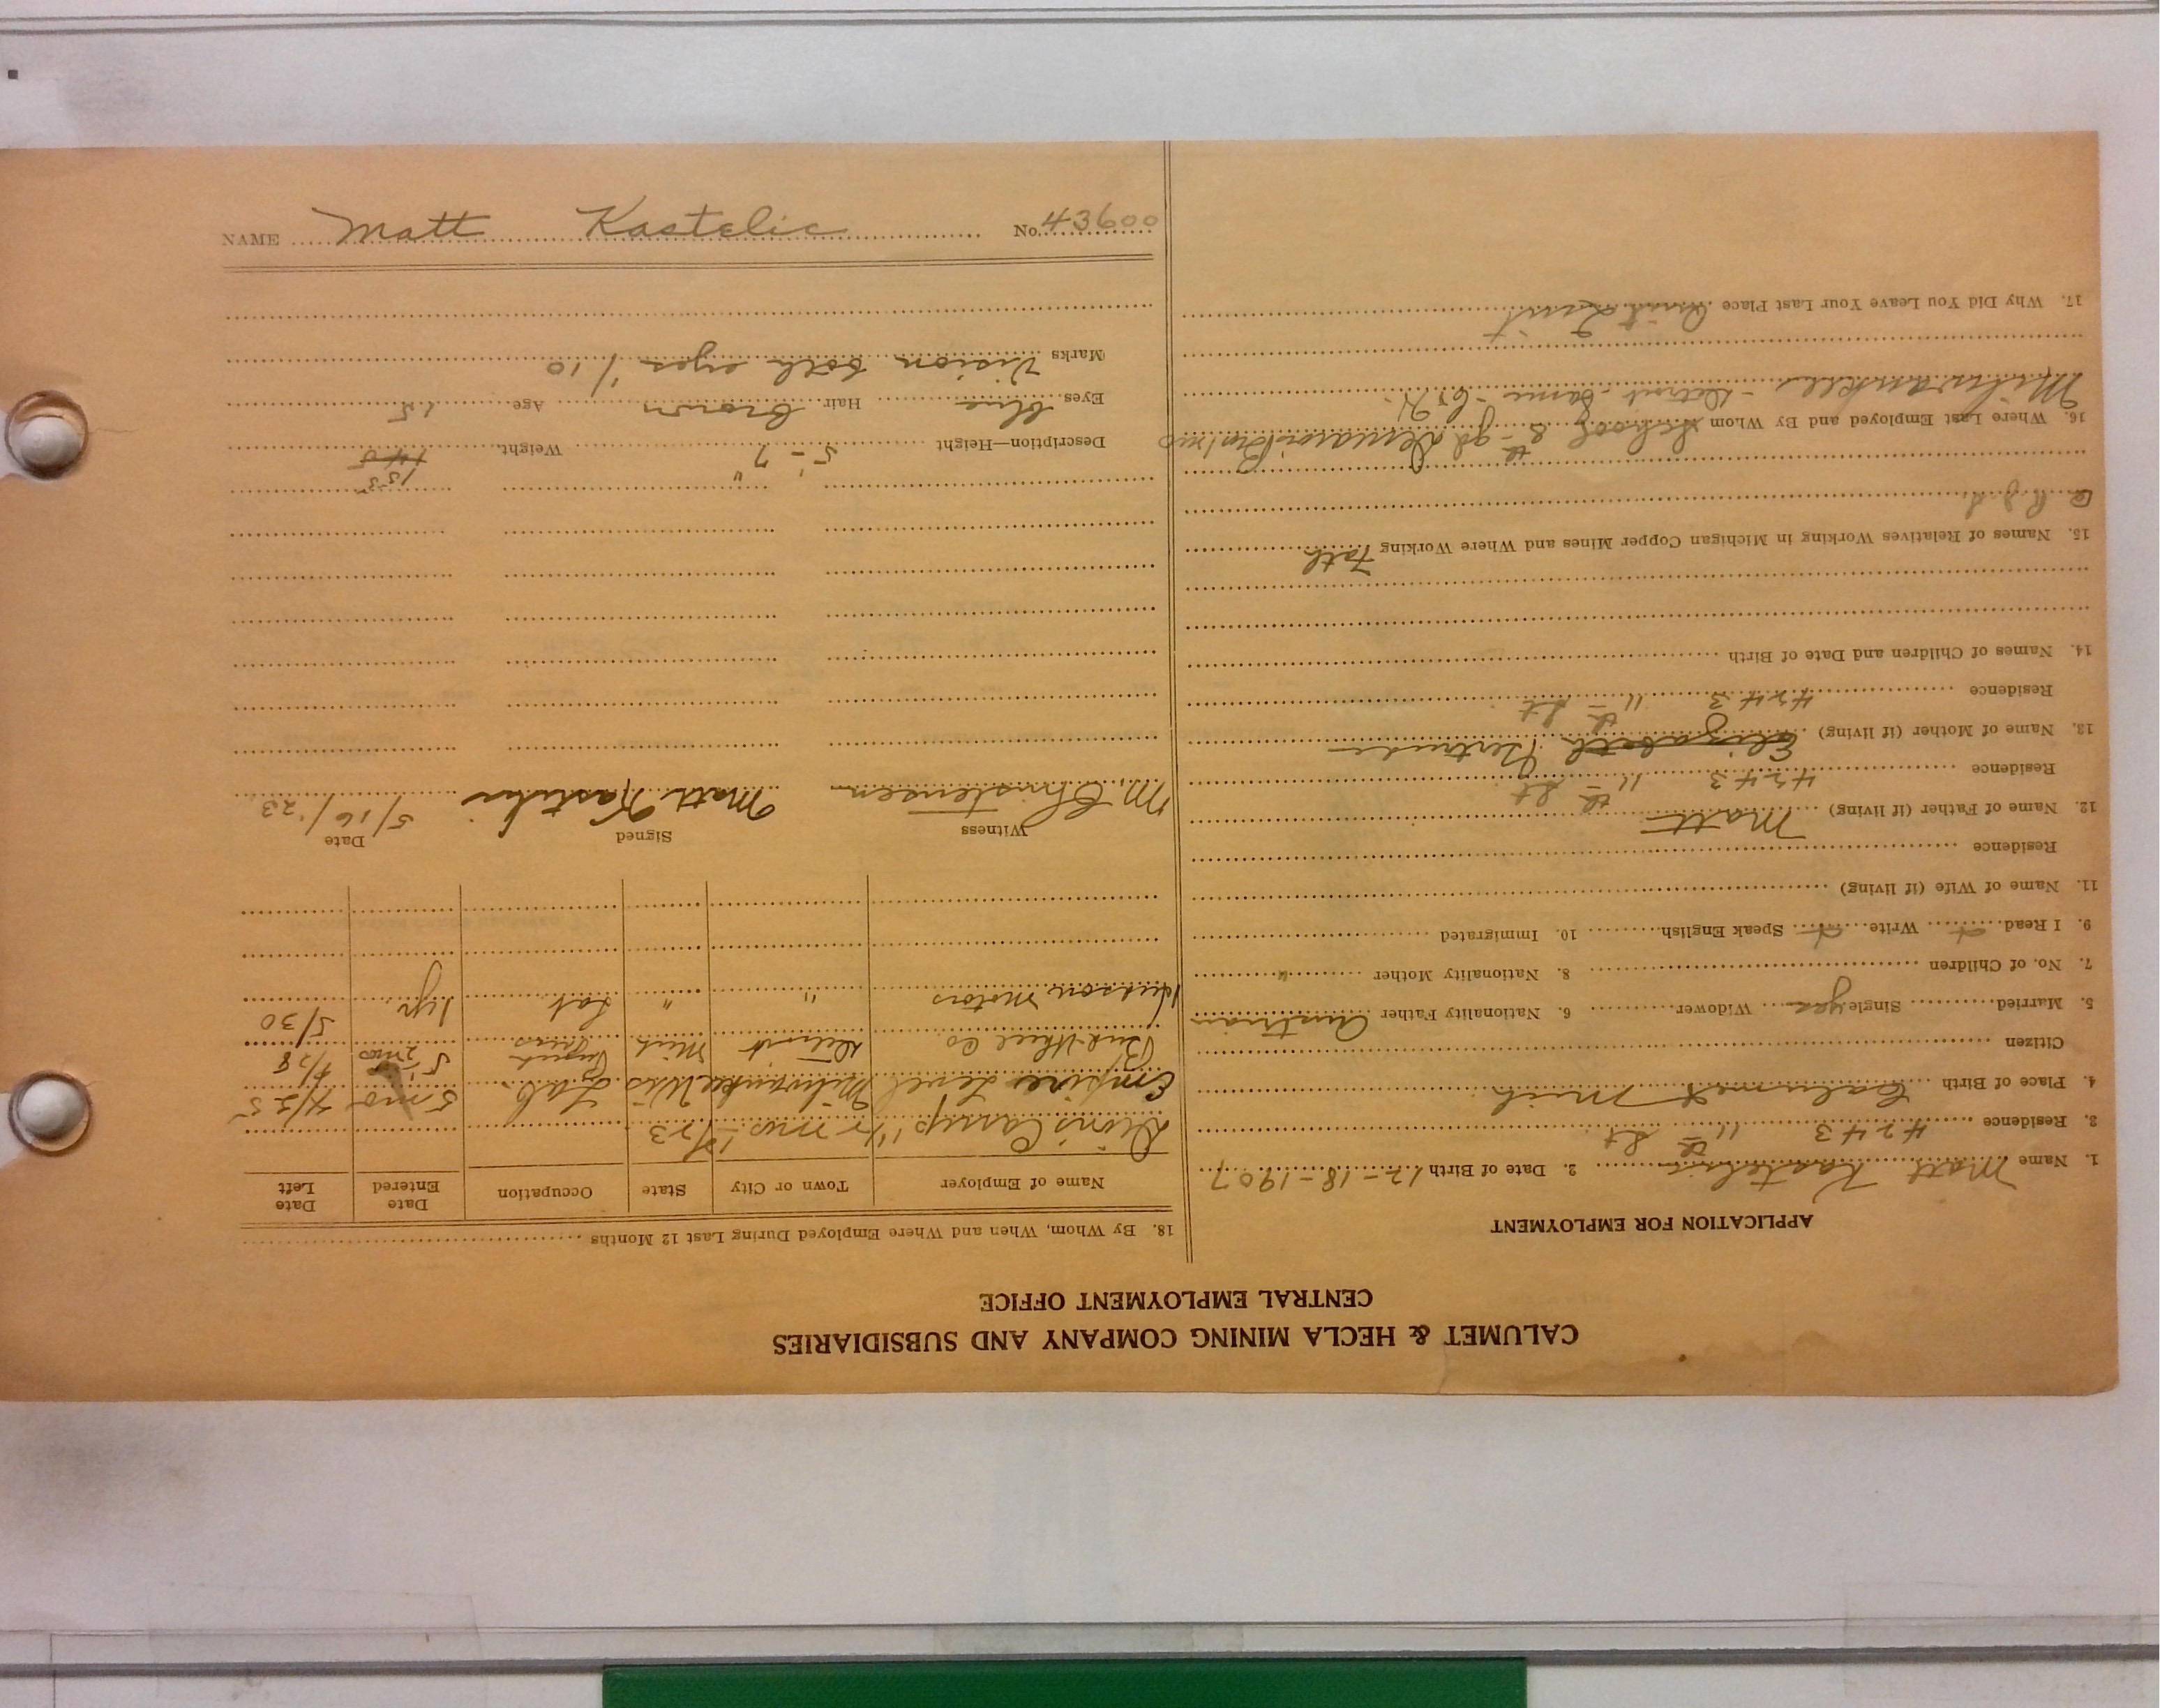 CALUMET & HECLA MINING COMPANY AND SUBSIDIARIES
CENTRAL EMPLOYMENT OFFICE
APPLICATION FOR EMPLOYMENT
1. Name Matt Kastelic 2. Date of Birth 12-18-1907
3. Residence 4243 11th St
4. Place of Birth Calumet Mich
Citizen
5. Married Single yes Widower 6. Nationality Father Austrian
7. No. of Children 8. Nationality Mother "
9. I Read Write Speak English 10. Immigrated
11. Name of Wife (if living)
Residence
12. Name of Father (if living) Matt
Residence 4243 11th St
13. Name of Mother (if living) Elizabeth Gertrude
Residence 4243 11th St
14. Names of Children and Date of Birth
15. Names of Relatives Working in Michigan Copper Mines and Where Working Fath
16. Where Last Employed and By Whom School 8th gd
Milwaukee - Detroit
17. Why Did You Leave Your Last Place Quit
18. By Whom, When and Where Employed During Last 12 Months
Name of Employer Town or City State Occupation Date Entered Date Left
Camp 1 1/2 mos
Empire Level Milwaukee Wis Lab 5 mo 4/25
Budd Wheel Co. Detroit Mich 5 1/2 mos
Hudson Motors " " Lab 1 yr 5/30
Witness Signed Date
M. Christensen Matt Kastelic 5/16/23
Description—Height 5'-7" Weight 140 153
Eyes blue Hair Brown Age 15
Marks Vision both eyes 1/10
NAME Matt Kastelic No. 43600